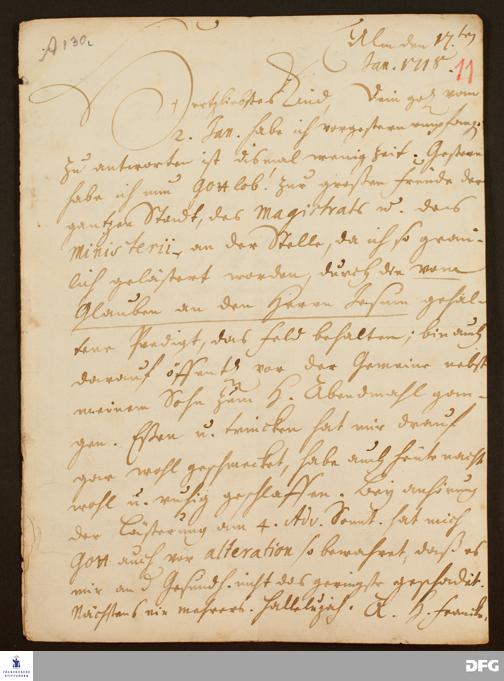 A 130.
Ulm den 17.ten
Jan. 1718.
11
Hertzliebstes Kind, Dein gel. vom
2. Jan. habe ich vorgestern empfang.
zu antworten ist dismal wenig Zeit. Gestern
habe ich nun Gott lob! zur großen Freude der
gantzen Stadt, des Magistrats u. des
Ministerii, an der Stelle, da ich so greu-
lich gelästert worden, durch die vom
Glauben an den Herrn Jesum gehal-
tene Predigt, das Feld behalten; bin auch
darauf öffentl. vor der Gemeine nebst
meinem Sohn zum H. Abendmahl gan-
gen. Eßen u. trincken hat mir drauf
gar wohl geschmecket, habe auch heute nacht
wohl u. ruhig geschlaffen. Bey anhörung
der Lästerung am 4. Adv. Sonnt. hat mich
Gott auch vor alteration so bewahret, daß es
mir an d. Gesundh. nicht das geringste geschadet.
Nächstens ein mehrers. Hallelujah. A. H. Francke.
FRANCKESCHE
STIFTUNGEN
DFG